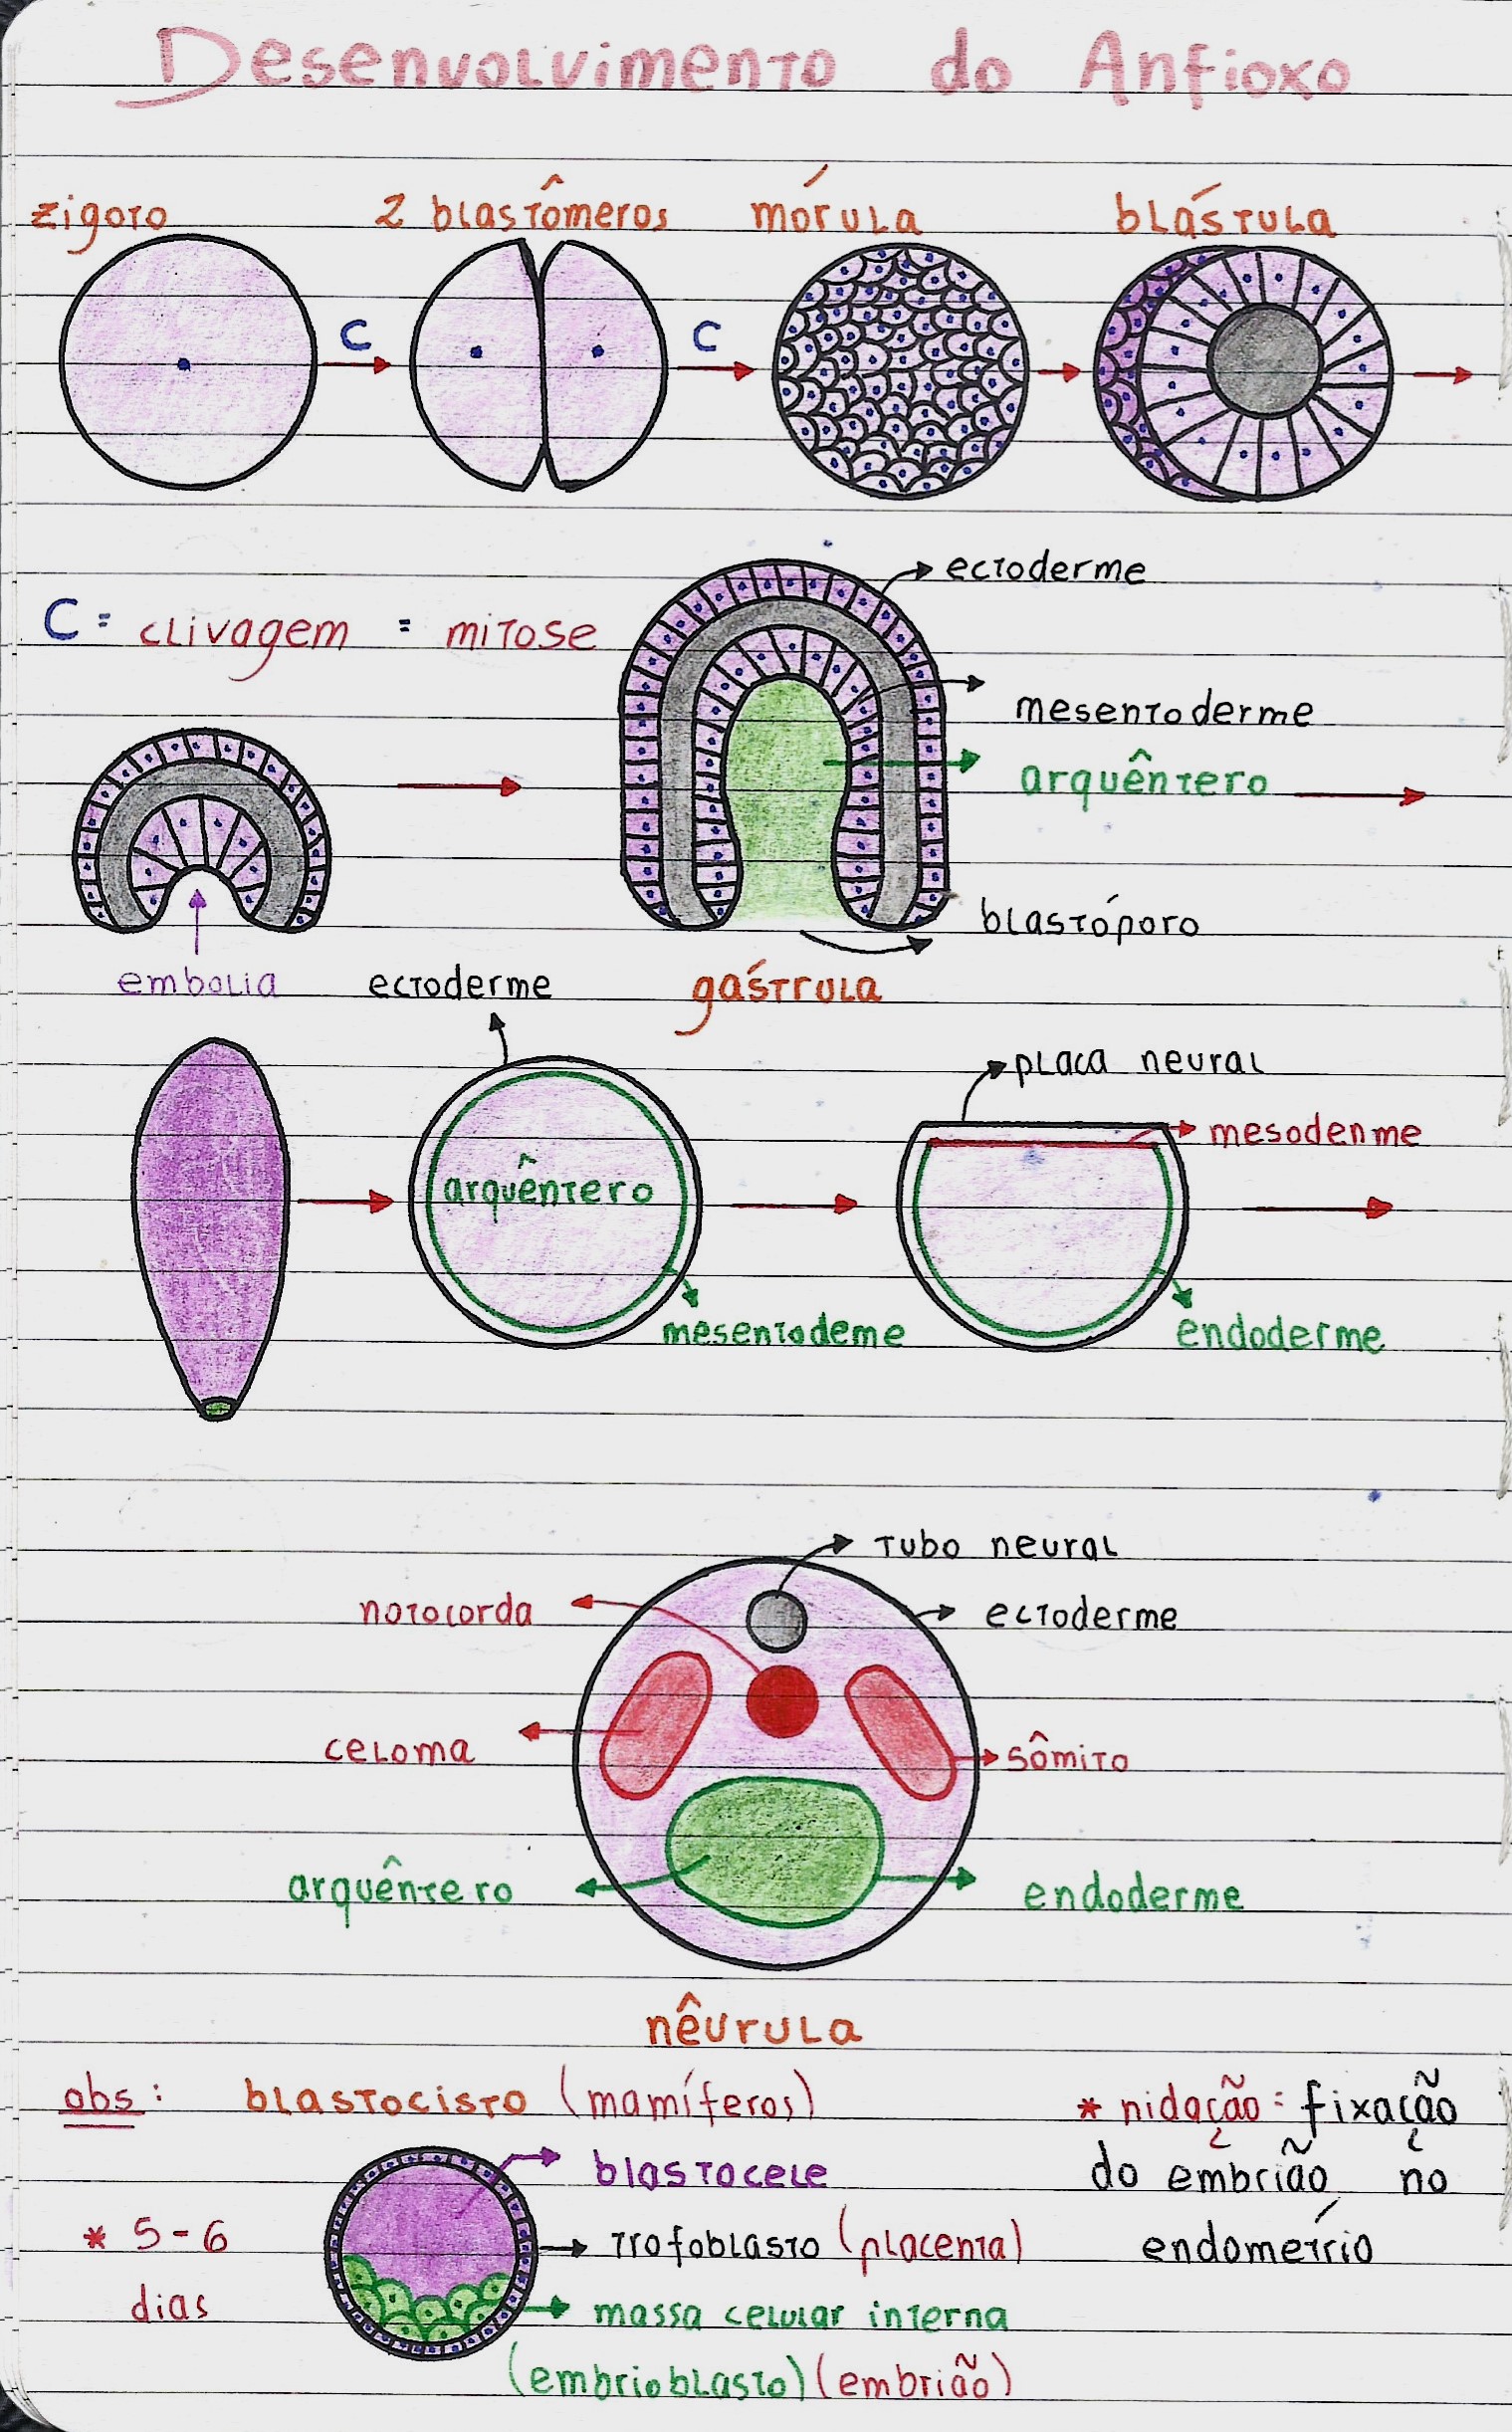 Desenvolvimento do Anfioxo
zigoto 2 blastômeros mórula blástula
C C
ectoderme
C = clivagem = mitose
mesentoderme
arquêntero
blastóporo
embolia ectoderme gástrula
placa neural
mesodenme
arquêntero
mesentodeme endoderme
tubo neural
notocorda ectoderme
celoma sômito
arquêntero endoderme
nêurula
obs: blastocisto (mamíferos) * nidação: fixação
blastocele do embrião no
* 5-6 trofoblasto (placenta) endométrio
dias massa celular interna
(embrioblasto) (embrião)